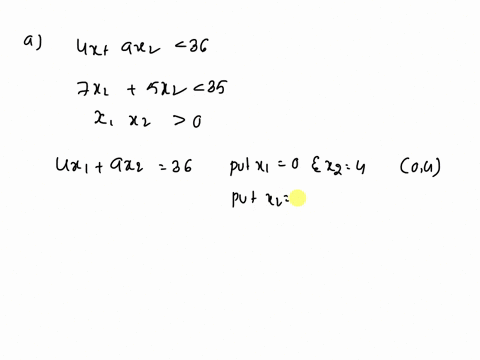 a) 4x+ 9x2 <36
7x1 + 5x2 <35
x1 x2 > 0
4x1 + 9x2 = 36 put x1 = 0 & x2 = 4 (0,4)
put x2=